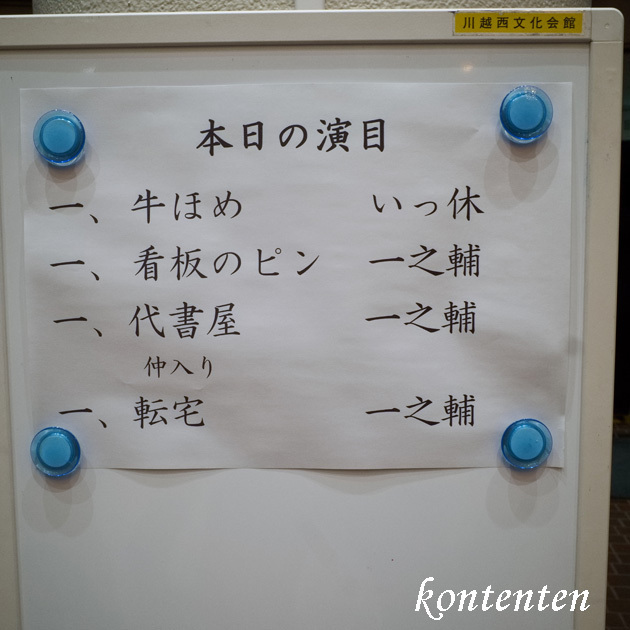 川越西文化会館
本日の演目
一、牛ほめ いっ休
一、看板のピン 一之輔
一、代書屋 一之輔
仲入り
一、転宅 一之輔
kontenten